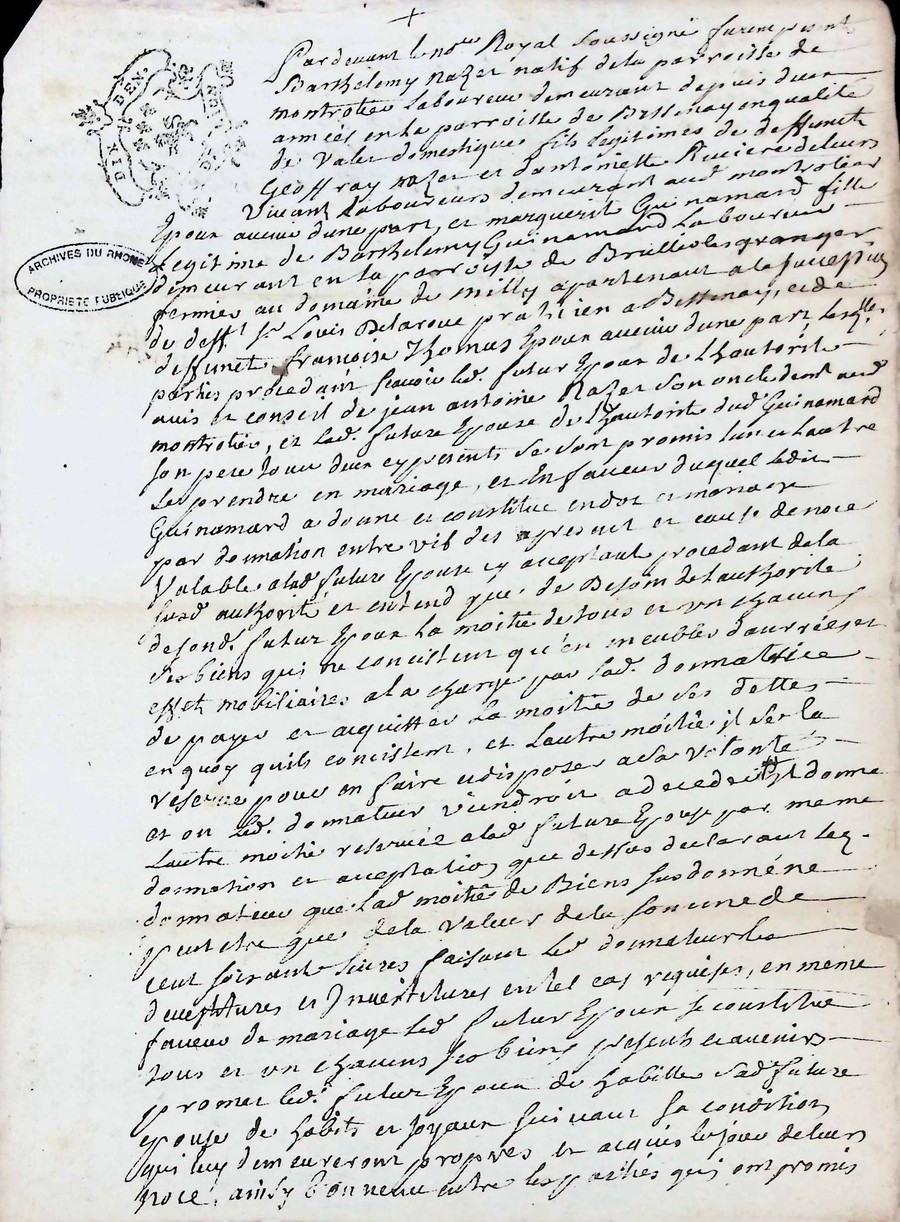 Pardevant le no.re Royal soussigné furent present
Barthelemy Nazer natif de la parroisse de
montrotier Laboureur demeurant depuis deux
années en la parroisse de Bessenay en qualité
de valet domestique fils legitimes de deffunct
Geoffray Nazer et dantoinette Riviere deleurs
vivant Laboureurs demeurant aud montrotier
Epoux avenir dune part, et marguerit Guinamard fille
Legitime de Barthelemy Guinamard Laboureur
demeurant en la parroisse de Brulliolesgranger
fermier au domaine de milly apartenant a la succession
de deft Sr Louis Delaroue praticien a Bessenay, et de
deffunct françoise Thomas Epoux avenir dune part, lesq.lles
parties procedant scavoir led. futur Epoux de Lhautorité
avis et conseil de jean antoine Nazer son oncle demt aud
montrotier, et Lad. future Epouse de Lhautorité dud Guinamard
son pere tous deux cy presents se sont promis lun et Lautre
se prendre en mariage, et En faveur duquel ledit
Guinamard a donne et constitue en dot et mariage
par donnation entre vif des a present et cause de noce
valable a lad. future Epouse cy acceptant procedant de la
susd. authorité et entend que de Besoin de Lauthorité
de sond. futur Epoux La moitié de tous et un chacuns
ses biens qui ne concistent qu'en meubles danrrées et
effet mobiliaires a la charge par lad. donnatrice
de payer et acquitter La moitié de ses dettes
en quoy quils concistent, et Lautre moitié il se la
reserve pour en faire et disposer a sa volonté
et ou Led. donnateur viendroit a decedé il donne
Lautre moitié reservée a lad future Epouse par meme
donnation et acceptation que dessus declarant led.
donnateur que Lad moitié de Biens susdonné ne
peut etre que de la valeur de la somme de
cent soixante livres faisant led donnateur les
devestitures et Investitures en tel cas requises, en meme
faveur de mariage led futur Epoux se constitue
tous et un chacuns ses biens presents et avenirs
promet led. futur Epoux de habillé sad. future
epouse de habits et joyaux suivant sa condition
qui luy demeureront propres et acquis le jour de leurs
noce, ainsy convenu entre les parties qui ont promis
DIX DEN.
ARCHIVES DU RHONE
PROPRIETE PUBLIQUE